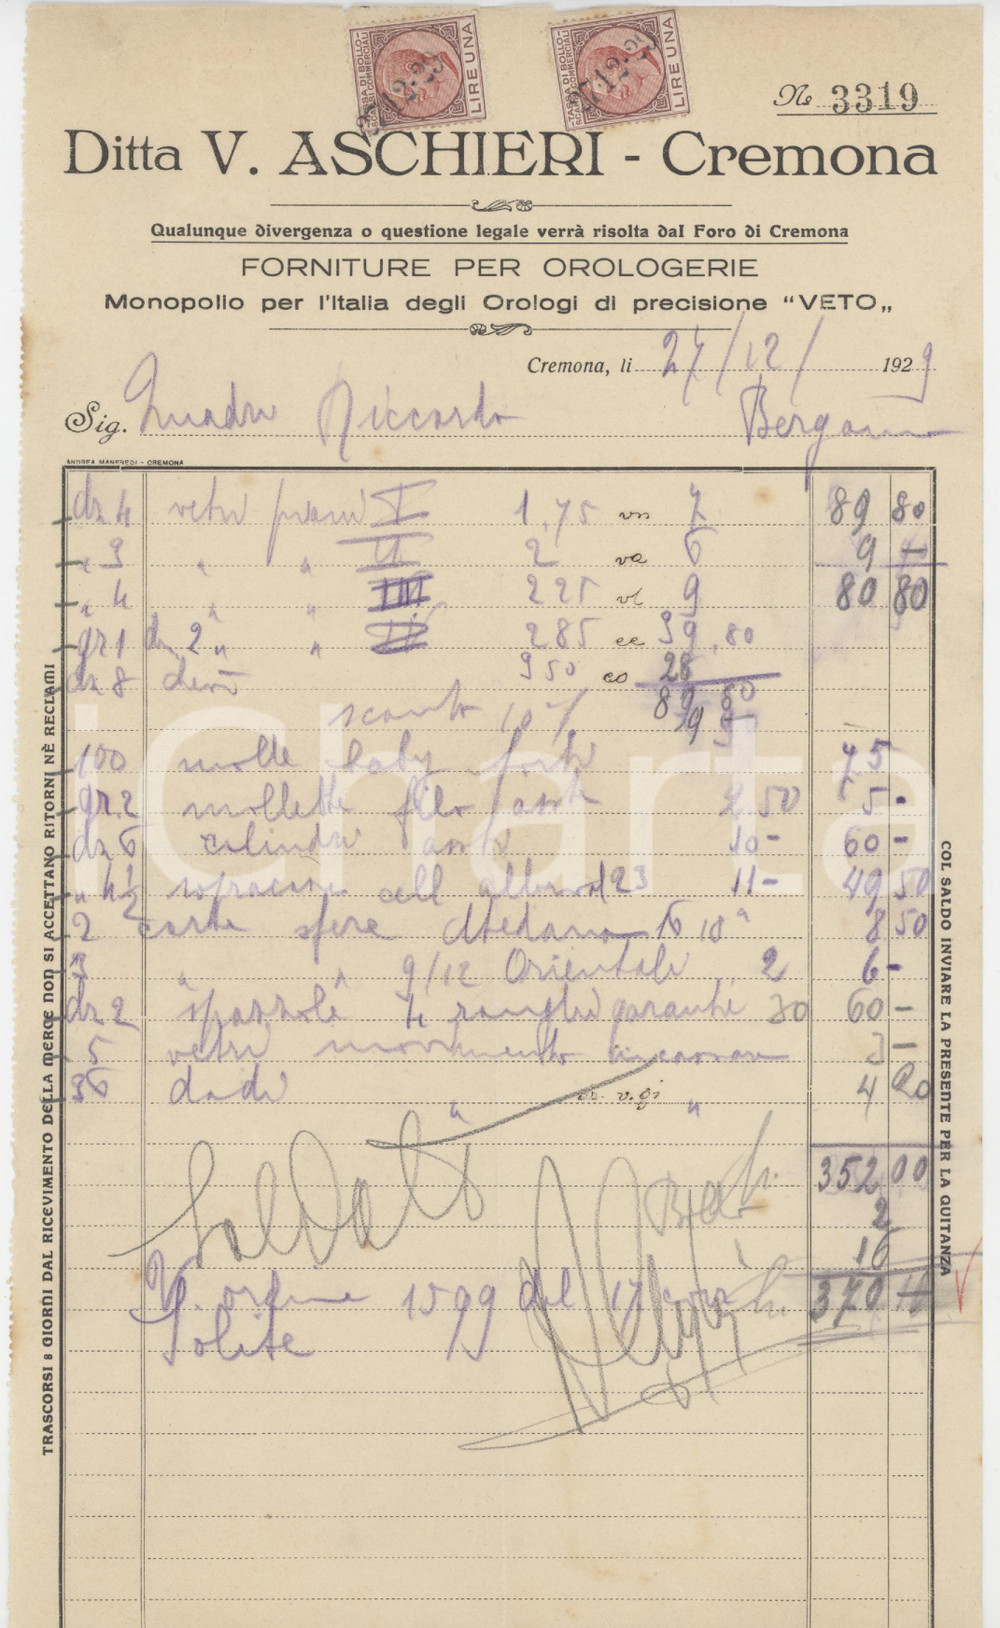 TASSA DI BOLLO SCAMBI COMMERCIALI LIRE UNA
27·12·29
TASSA DI BOLLO SCAMBI COMMERCIALI LIRE UNA
27·12·29
No 3319
Ditta V. ASCHIERI - Cremona
Qualunque divergenza o questione legale verrà risolta dal Foro di Cremona
FORNITURE PER OROLOGERIE
Monopolio per l'Italia degli Orologi di precisione “VETO„
Cremona, li 27/12/ 1929
Sig. Quadri Riccardo Bergamo
ANDREA MANFREDI - CREMONA
dz 4 vetri piani I 1,75 vn 7 89 80
" 3 " " II 2 va 6 9 -
" 4 " " III 2 25 vl 9 80 80
gr 1 dz 2 " " IV 2 85 ee 39,80
dz 8 9 50 co 28
89 80
sconto 10 % 9 -
100 molle baby forti 75
gr. 2 mollette filo 2.50 5 -
dz 6 cilindri 10 - 60 -
" 4 1/2 11 - 49 50
2 carte sfere 10" 8 50
3 " " 9/12 Orientali 2 6 -
dz 2 spazzole 4 ranghi garantite 30 60 -
5 vetri movimento 3 -
36 dadi " " 4 20
or. v. gi
352 00
2
16
Saldato
370 -
V. ordine 1599 del 17 corr.
Solite
TRASCORSI 8 GIORNI DAL RICEVIMENTO DELLA MERCE NON SI ACCETTANO RITORNI NÈ RECLAMI
COL SALDO INVIARE LA PRESENTE PER LA QUITANZA
iCharta